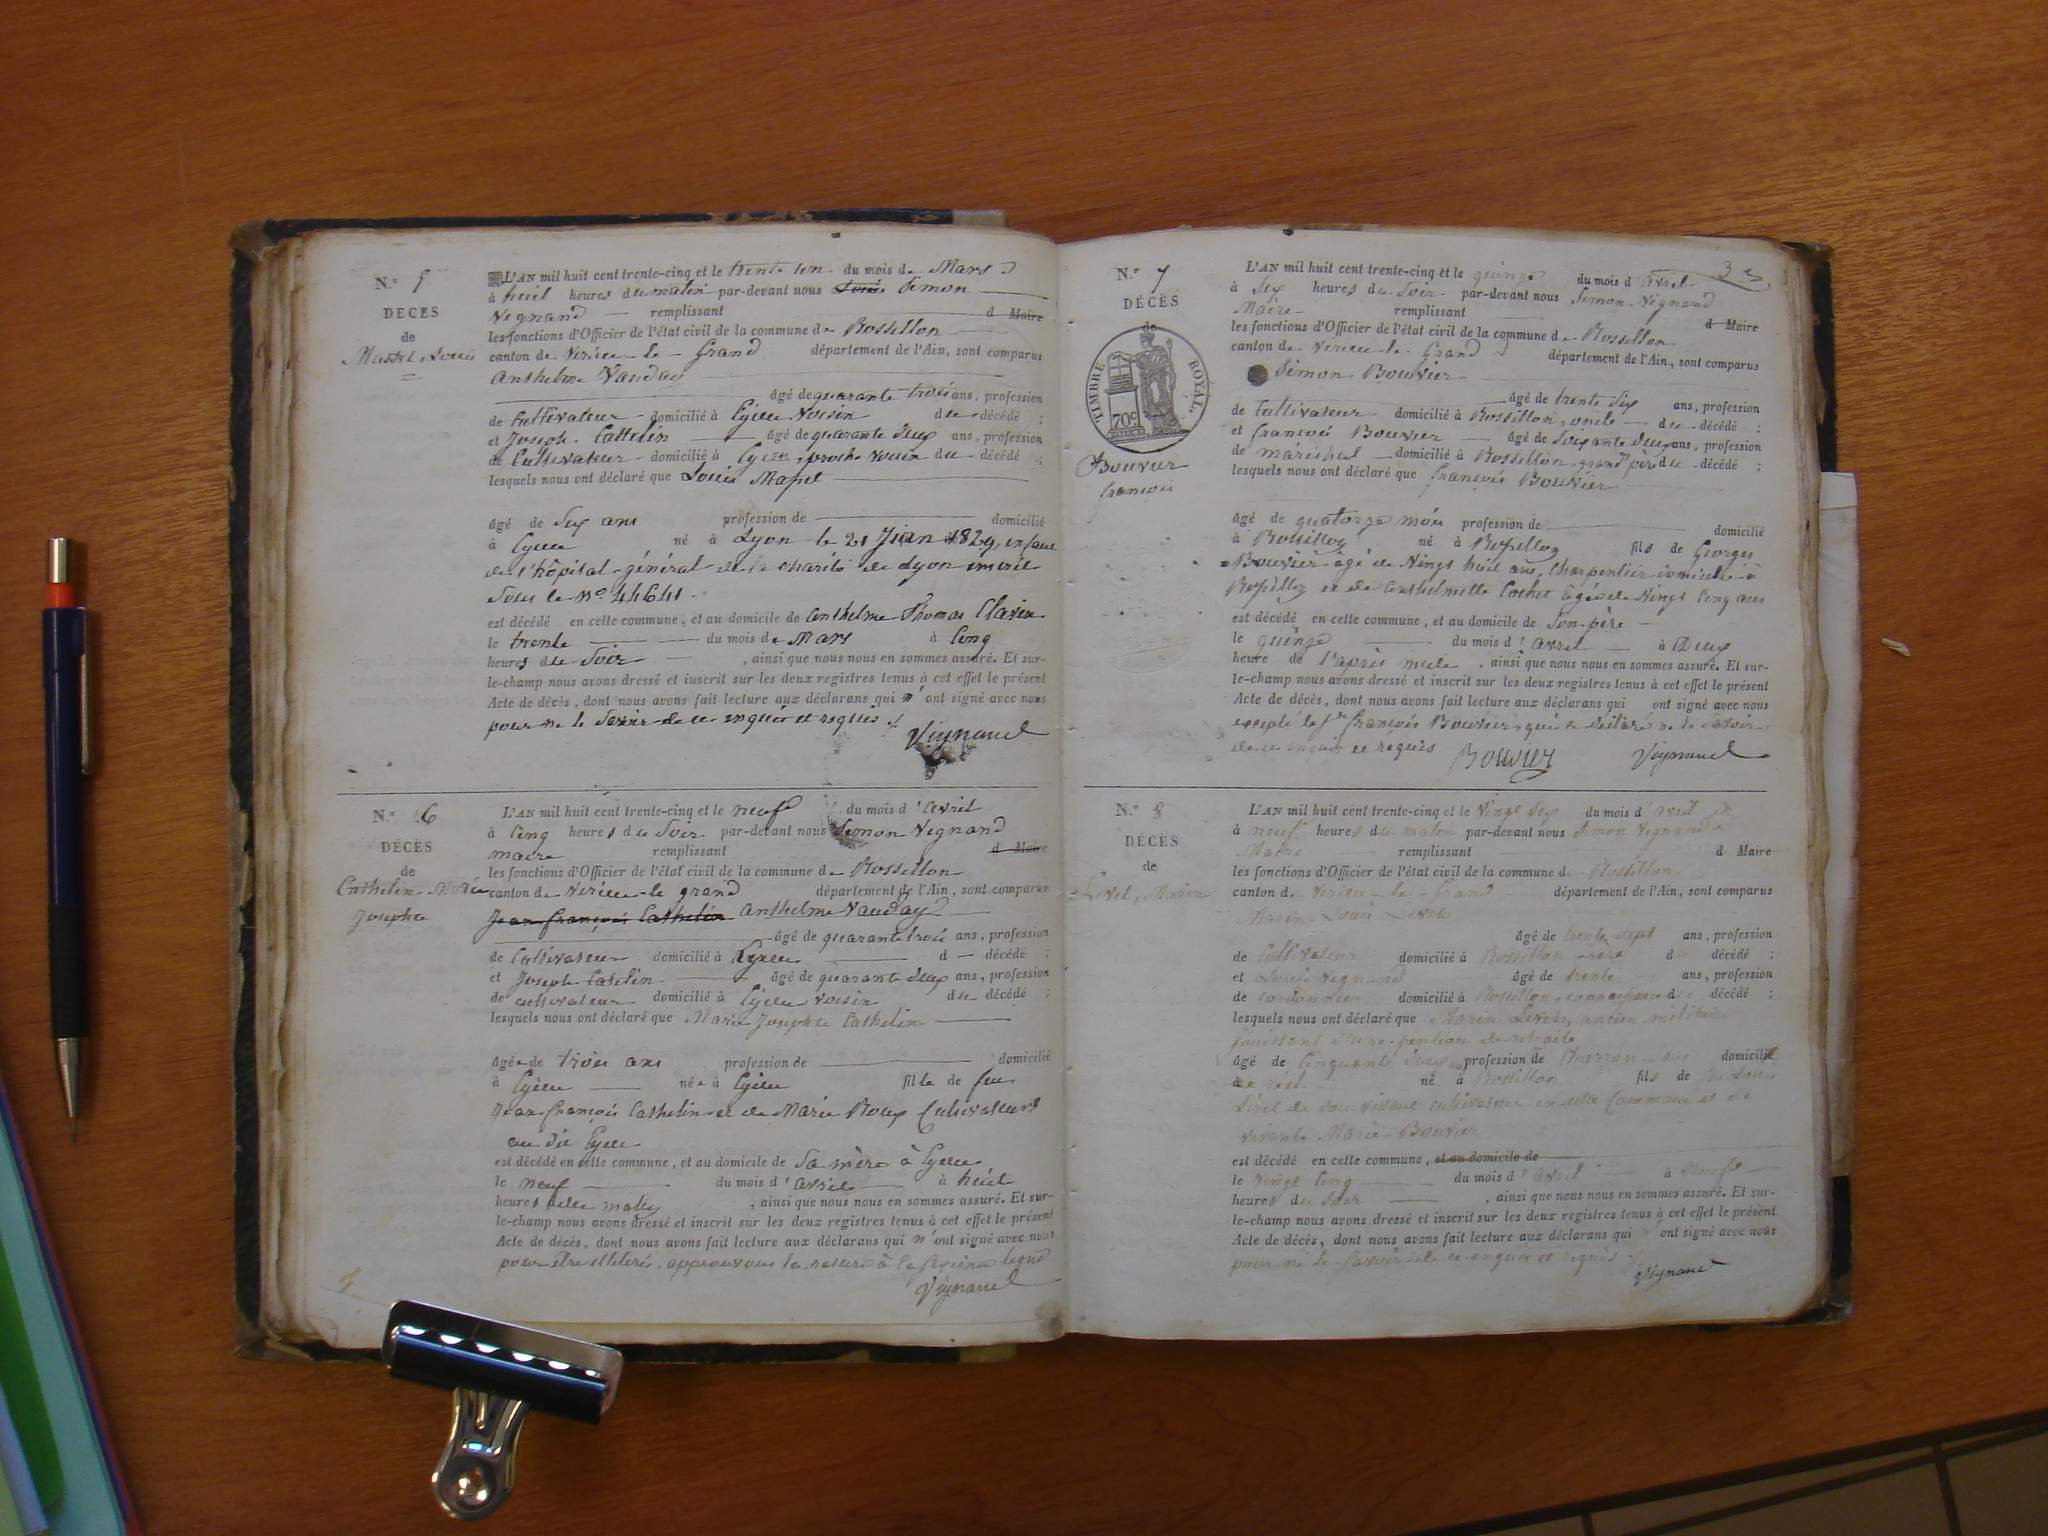 N.° 5
DÉCÈS
de
Louis
L'AN mil huit cent trente-cinq et le trente un du mois de Mars
à huit heures du matin par-devant nous Louis Simon
Vignand remplissant d Maire
les fonctions d'Officier de l'état civil de la commune de Rossillon
canton de Virieu-le-Grand département de l'Ain, sont comparus
Anthelme Vauday
âgé de quarante trois ans, profession
de Cultivateur domicilié à Eyeu voisin du décédé ;
et Joseph Cattelin âgé de quarante deux ans, profession
de Cultivateur domicilié à Eyeu, proche voisin du décédé ;
lesquels nous ont déclaré que Louis
âgé de Six ans profession de domicilié
à Eyeu né à Lyon le 21 Juin 1829, enfant
de l'hôpital-général de la charité de Lyon inscrit
sous le N.°
est décédé en cette commune, et au domicile de Anthelme Thomas
le trente du mois de Mars à Cinq
heures du Soir , ainsi que nous nous en sommes assuré. Et sur-
le-champ nous avons dressé et inscrit sur les deux registres tenus à cet effet le présent
Acte de décès, dont nous avons fait lecture aux déclarans qui n'ont signé avec nous
pour ne le savoir de ce enquis et requis ./.
Vignand
N.° 6
DÉCÈS
de
Cathelin Marie
Josephte
L'AN mil huit cent trente-cinq et le neuf du mois d'avril
à Cinq heures du Soir par-devant nous Simon Vignand
maire remplissant d Maire
les fonctions d'Officier de l'état civil de la commune de Rossillon
canton de Virieu-le-grand département de l'Ain, sont comparus
Jean françois Cathelin Anthelme Vauday
âgé de quarante trois ans, profession
de Cultivateur domicilié à Eyeu d décédé ;
et Joseph Catelin âgé de quarante deux ans, profession
de cultivateur domicilié à Eyeu voisin du décédé ;
lesquels nous ont déclaré que Marie Josephte Cathelin
âgée de trois ans profession de domicilié
à Eyeu née à Eyeu fille de feu
Jean-françois Cathelin et de Marie Roux Cultivateurs
au dit Eyeu
est décédé en cette commune, et au domicile de Sa mère à Eyeu
le neuf du mois d'avril à huit
heures du matin , ainsi que nous nous en sommes assuré. Et sur-
le-champ nous avons dressé et inscrit sur les deux registres tenus à cet effet le présent
Acte de décès, dont nous avons fait lecture aux déclarans qui n'ont signé avec nous
pour être illitérés. approuvons la rature à la sixième ligne
Vignand
3
N.° 7
DÉCÈS
de
TIMBRE ROYAL
70c
Bouvier
françois
L'AN mil huit cent trente-cinq et le quinze du mois d'avril
à Six heures du Soir par-devant nous Simon Vignand
Maire remplissant d Maire
les fonctions d'Officier de l'état civil de la commune de Rossillon
canton de Virieu-le-Grand département de l'Ain, sont comparus
Simon Bouvier
âgé de trente Six ans, profession
de Cultivateur domicilié à Rossillon, oncle du décédé ;
et françois Bouvier âgé de soixante deux ans, profession
de maréchal domicilié à Rossillon, grand père du décédé ;
lesquels nous ont déclaré que françois Bouvier
âgé de quatorze mois profession de domicilié
à Rossillon né à Rossillon fils de Georges
Bouvier âgé de Vingt huit ans, Charpentier domicilié à
Rossillon et de Anthelmette Cochet âgée de Vingt Cinq ans
est décédé en cette commune, et au domicile de Son père
le quinze du mois d'avril à Deux
heure de l'après midi , ainsi que nous nous en sommes assuré. Et sur-
le-champ nous avons dressé et inscrit sur les deux registres tenus à cet effet le présent
Acte de décès, dont nous avons fait lecture aux déclarans qui ont signé avec nous
excepté le Sr. françois Bouvier qui a déclaré ne le Savoir
de ce enquis et requis Bouvier Vignand
N.° 8
DÉCÈS
de
Livet, Marin
L'AN mil huit cent trente-cinq et le Vingt Six du mois d'avril
à neuf heures du matin par-devant nous Simon Vignand
Maire remplissant d Maire
les fonctions d'Officier de l'état civil de la commune de Rossillon
canton de Virieu-le-Grand département de l'Ain, sont comparus
Louis Livet
âgé de trente sept ans, profession
de Cultivateur domicilié à Rossillon du décédé ;
et Louis Vignand âgé de trente ans, profession
de cordonnier domicilié à Rossillon, du décédé ;
lesquels nous ont déclaré que Marin Livet, ancien militaire
jouissant d'une pention de retraite
âgé de Cinquante deux profession de Charron domicilié
né à Rossillon fils de feu Louis
Livet de son vivant cultivateur en cette Commune et de
vivante Marie Bouvier
est décédé en cette commune, et au domicile de
le Vingt Cinq du mois d'avril à neuf
heures du Soir , ainsi que nous nous en sommes assuré. Et sur-
le-champ nous avons dressé et inscrit sur les deux registres tenus à cet effet le présent
Acte de décès, dont nous avons fait lecture aux déclarans qui n'ont signé avec nous
pour ne le savoir de ce enquis et requis ./.
Vignand